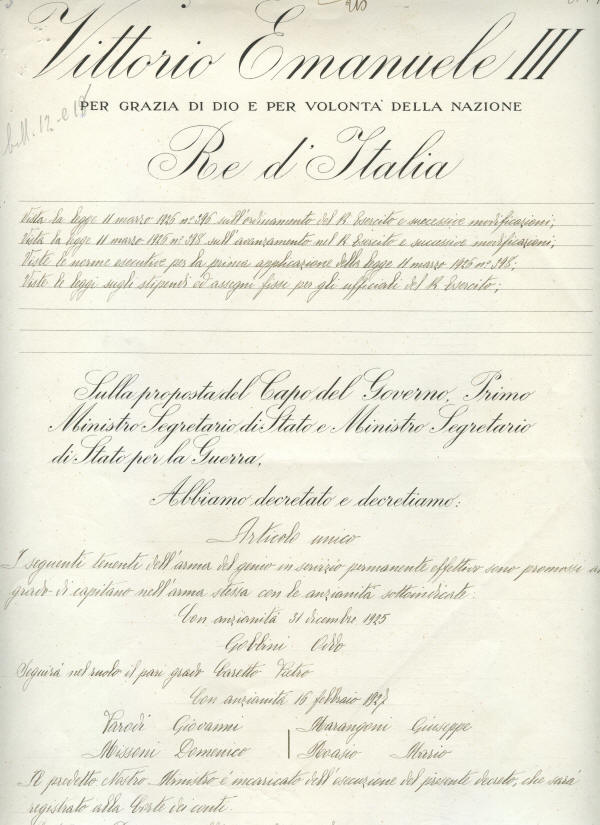 Vittorio Emanuele III
PER GRAZIA DI DIO E PER VOLONTA' DELLA NAZIONE
Re d'Italia
Vista la legge 11 marzo 1926 n° 396 sull'ordinamento del R. Esercito e successive modificazioni;
Vista la legge 11 marzo 1926 n° 398 sull'avanzamento nel R. Esercito e successive modificazioni;
Viste le norme esecutive per la prima applicazione della legge 11 marzo 1926 n° 398;
Viste le leggi sugli stipendi ed assegni fissi per gli ufficiali del R. Esercito;
Sulla proposta del Capo del Governo, Primo
Ministro Segretario di Stato e Ministro Segretario
di Stato per la Guerra,
Abbiamo decretato e decretiamo:
Articolo unico
I seguenti tenenti dell'arma del genio in servizio permanente effettivo sono promossi al
grado di capitano nell'arma stessa con le anzianità sottoindicate:
Con anzianità 31 dicembre 1925
Gobbini
Seguirà nel ruolo il pari grado Caretto Pietro
Con anzianità 16 febbraio 1927
Parodi Giovanni Marangoni Giuseppe
Missoni Domenico Mario
Il predetto Nostro Ministro è incaricato dell'esecuzione del presente decreto, che sarà
registrato alla Corte dei conti.